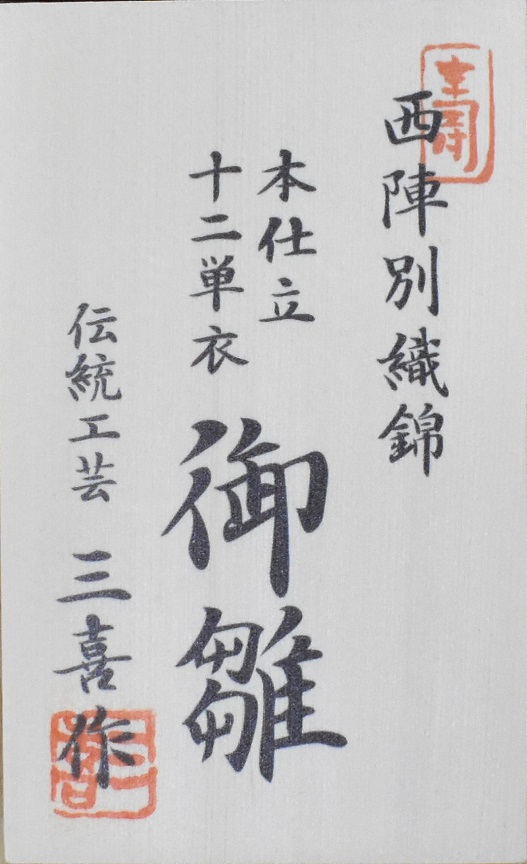 壽
西陣別織錦
本仕立
十二単衣
御雛
伝統工芸 三喜作
三喜